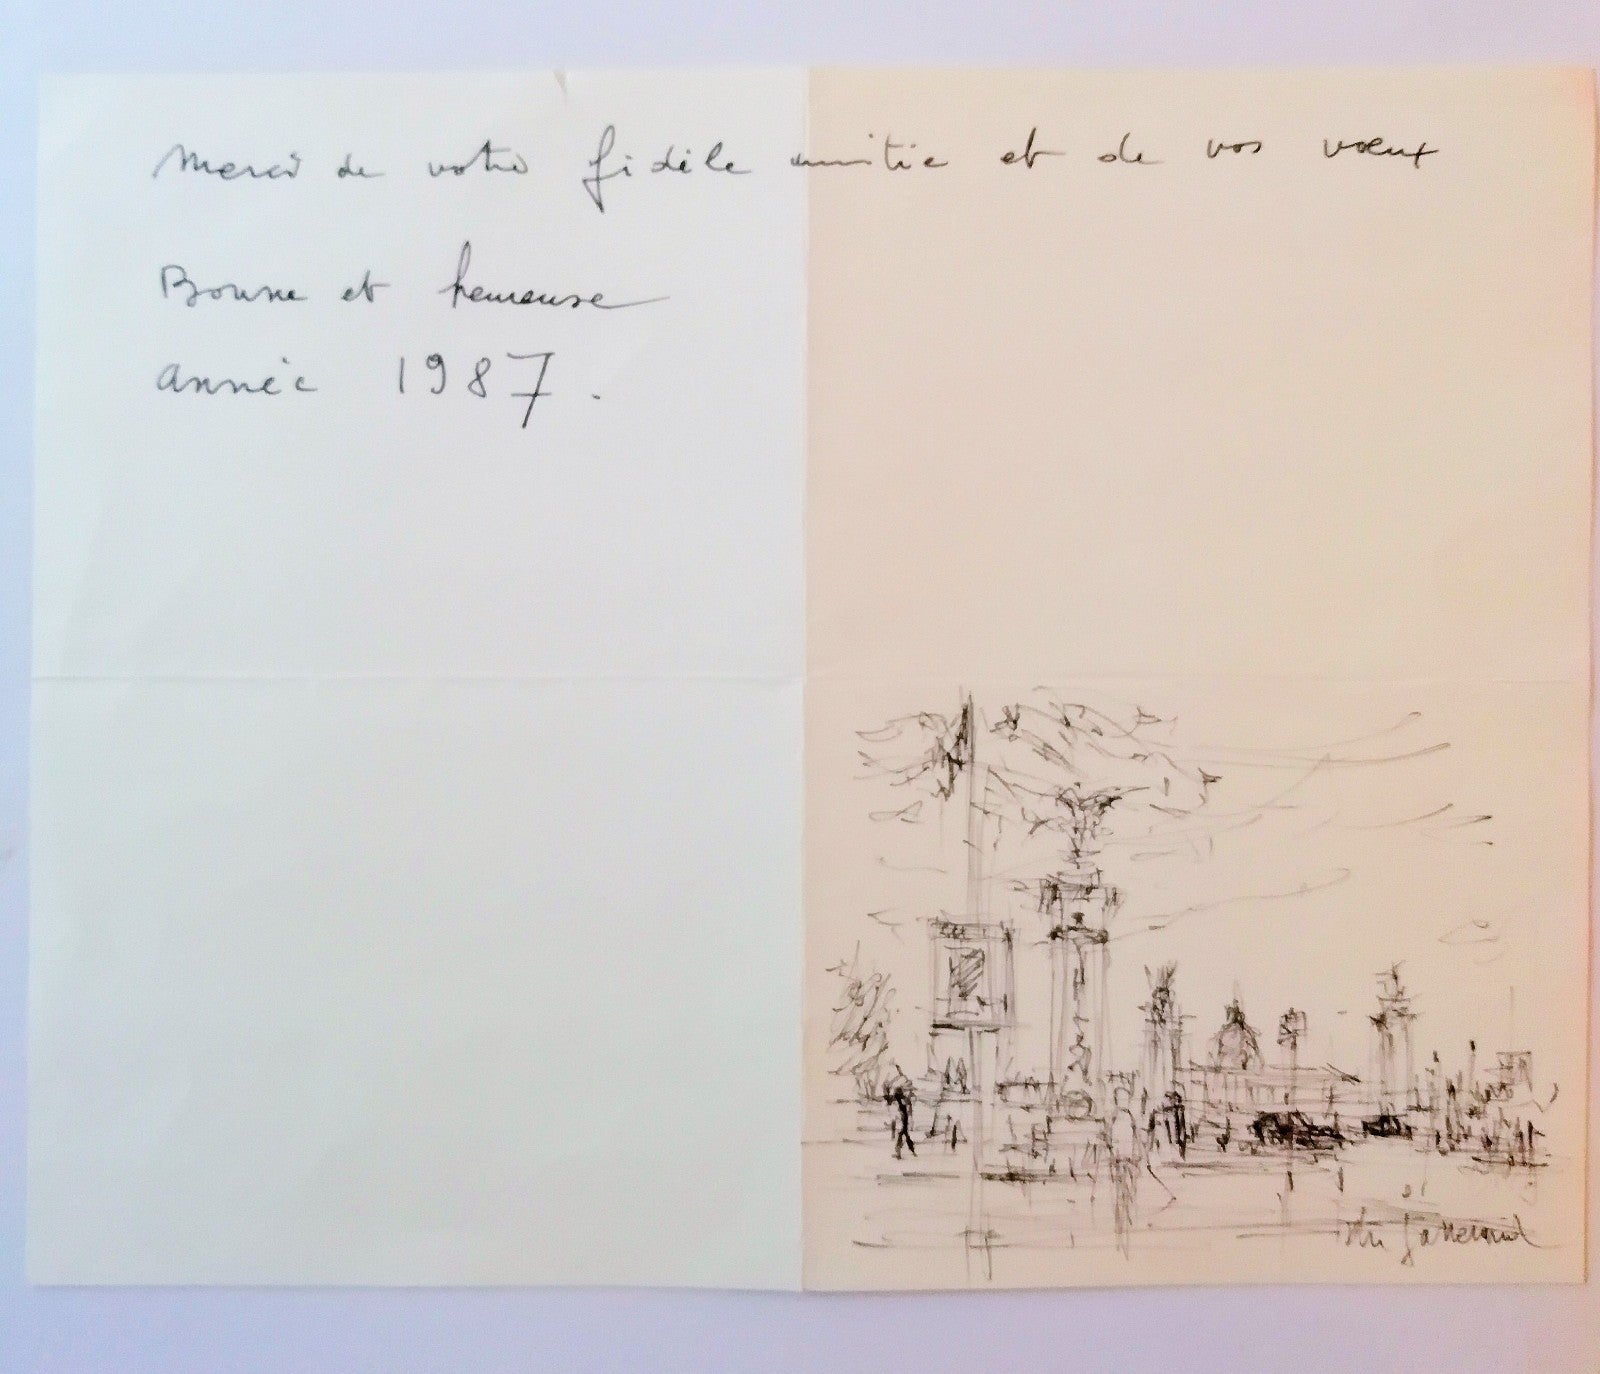 Merci de votre fidèle amitié et de vos vœux
Bonne et heureuse
année 1987.